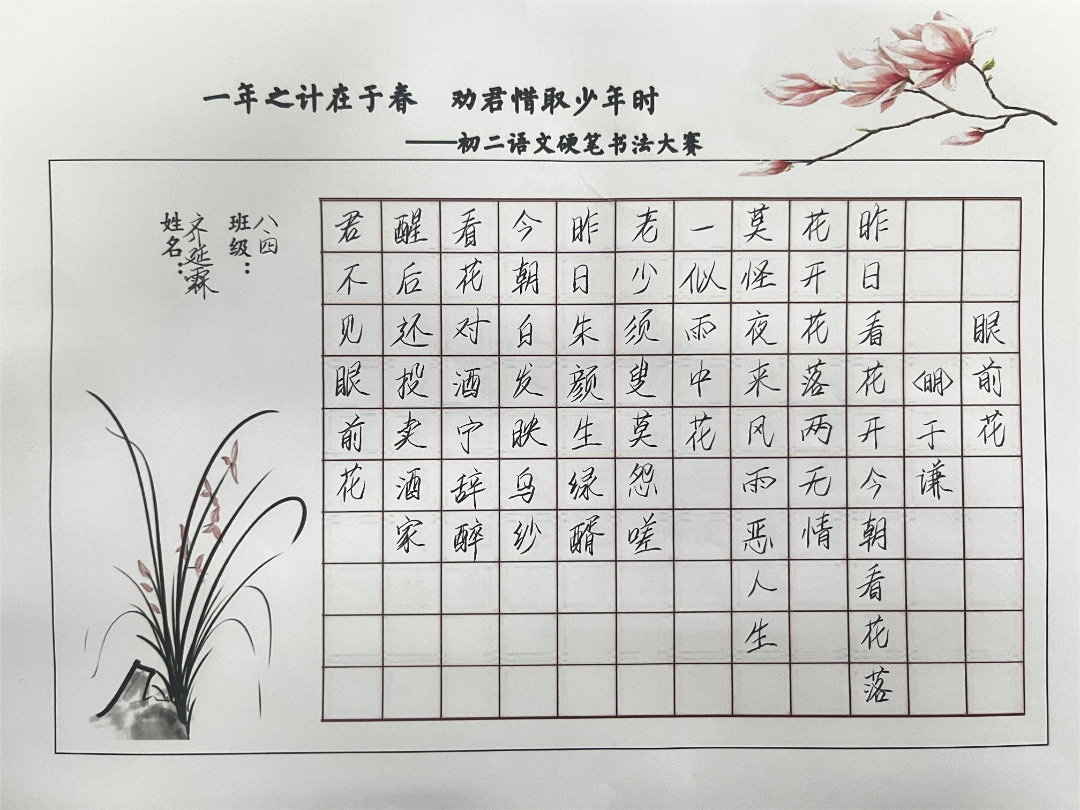 一年之计在于春 劝君惜取少年时
——初二语文硬笔书法大赛
眼前花
〈明〉于谦
昨日看花开今朝看花落
花开花落两无情
莫怪夜来风雨恶人生
一似雨中花
老少须叟莫怨嗟
昨日朱颜生绿醑
今朝白发映乌纱
看花对酒宁辞醉
醒后还投卖酒家
君不见眼前花
班级：八、四
姓名：齐延霖